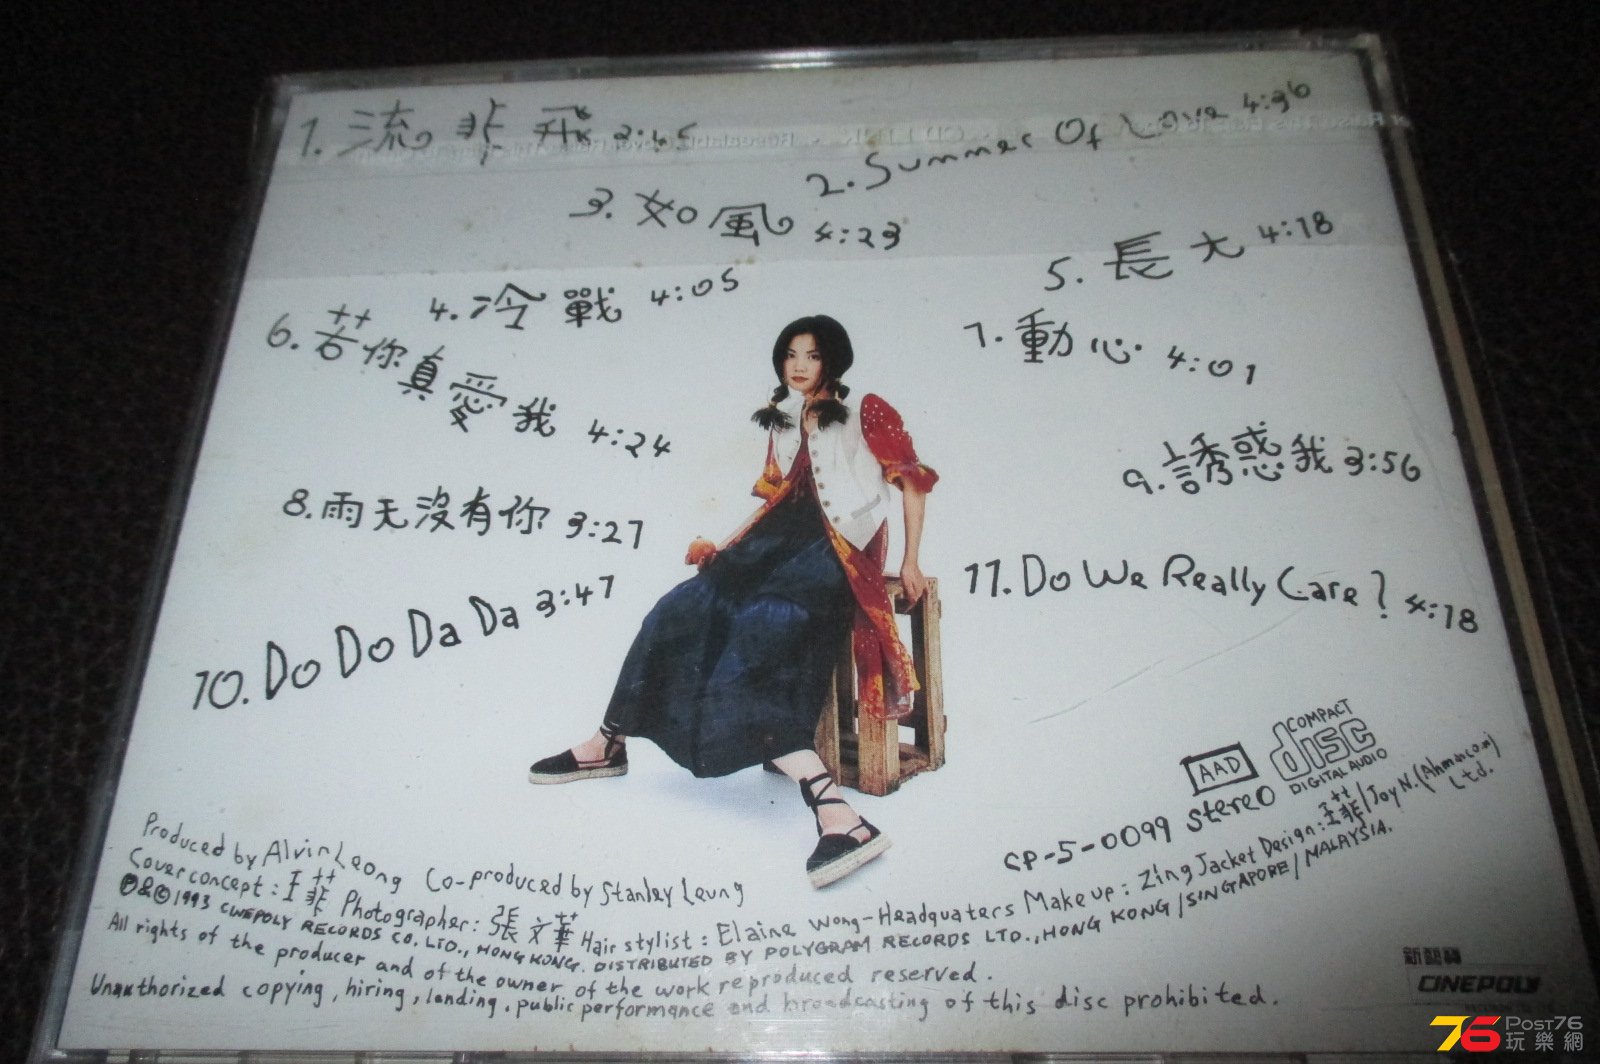 1. 流 非 飛 3:45
2. Summer Of Love 4:36
3. 如風 4:23
4. 冷戰 4:05
5. 長大 4:18
6. 若你真愛我 4:24
7. 動心 4:01
8. 雨天沒有你 3:27
9. 誘惑我 3:56
10. Do Do Da Da 3:47
11. Do We Really Care? 4:18
AAD
COMPACT
disc
DIGITAL AUDIO
CP-5-0099 stereo
Produced by Alvin Leong Co-produced by Stanley Leung
Cover concept: 王菲 Photographer: 張文華 Hair stylist: Elaine Wong-Headquaters Make up: Zing Jacket Design: 王菲/Joy N. Ltd.
℗&©1993 CINEPOLY RECORDS CO. LTD., HONG KONG. DISTRIBUTED BY POLYGRAM RECORDS LTD., HONG KONG/SINGAPORE/MALAYSIA.
All rights of the producer and of the owner of the work reproduced reserved.
Unauthorized copying, hiring, lending, public performance and broadcasting of this disc prohibited.
新藝寶
CINEPOLY
76 Post76
玩樂網